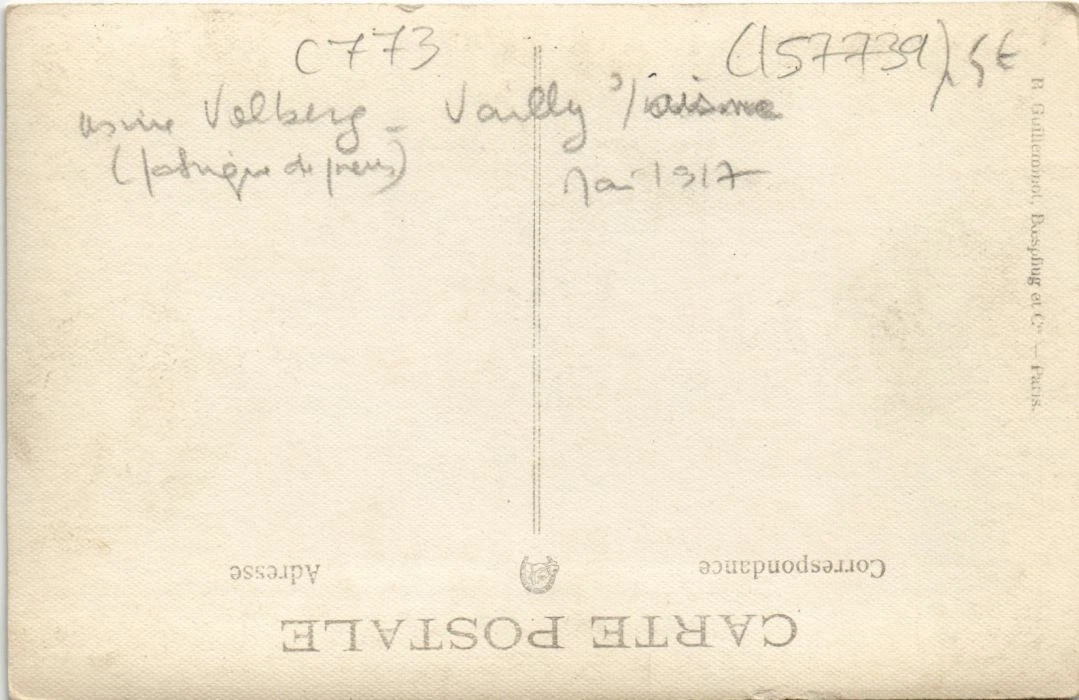 C773
(157739) 5€
usine Volberg - Vailly s/ aisne
(fabrique de pneus)
Mai 1917
R. Guilleminot, Bœspflug et Cie — Paris.
Correspondance
Adresse
CARTE POSTALE